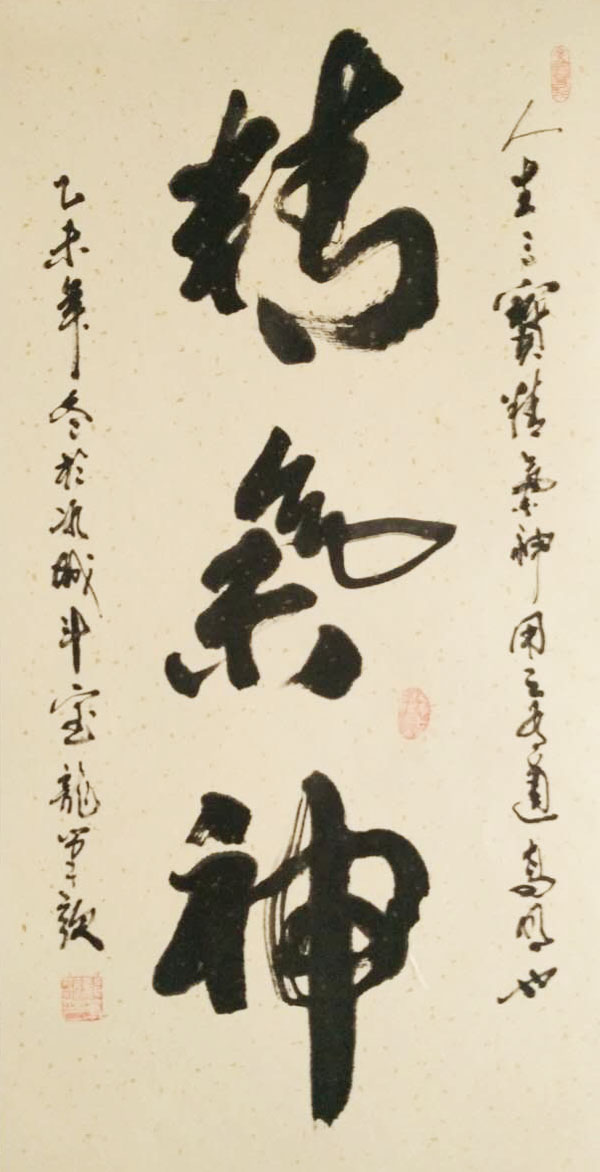 人生三寶精氣神用之有道高明也
精氣神
乙未年冬於冰城斗室龍